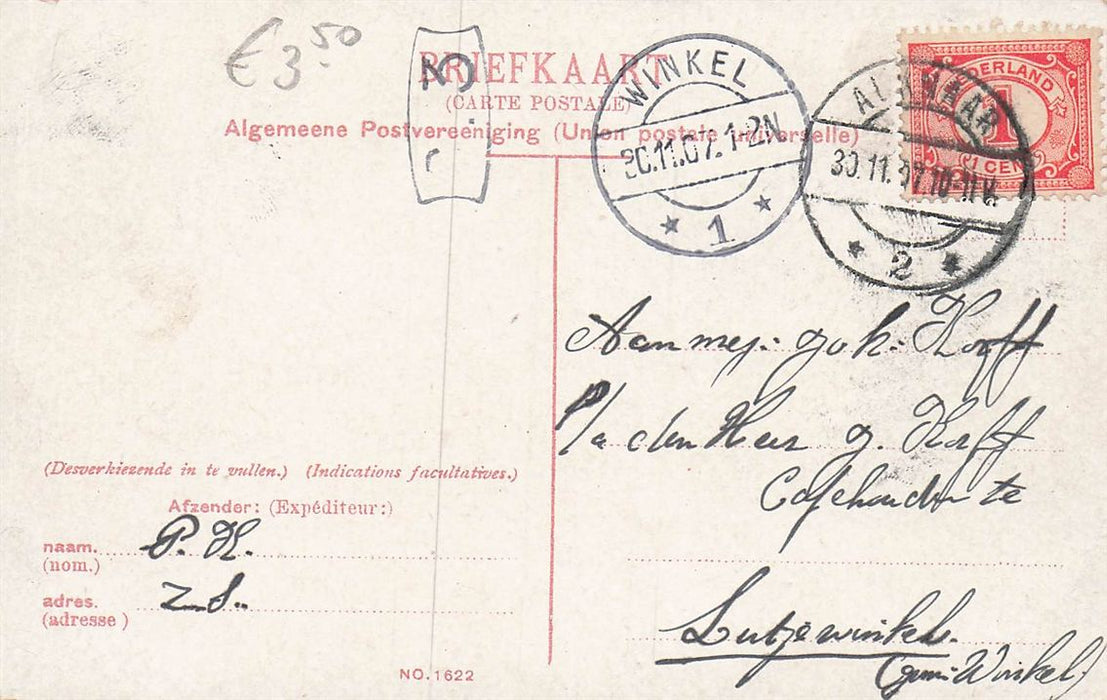 € 3.50
BRIEFKAART
(CARTE POSTALE)
Algemeene Postvereeniging (Union postale universelle)
5
r
WINKEL
30.11.07.1-2N
1
ALKMAAR
30.11.07.10-11V.
2
NEDERLAND
1
1 CENT
Aan mej: Joh: Korff
P/a den Heer J. Korff
Caféhouder te
Lutjewinkel.
(gem: Winkel)
(Desverkiezende in te vullen.) (Indications facultatives.)
Afzender: (Expéditeur:)
naam. P. K.
(nom.)
adres. Z. S.
(adresse)
NO. 1622